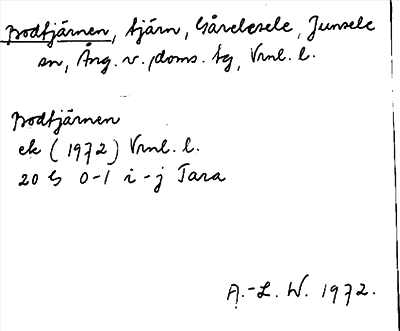 Bodtjärnen, tjärn, Gårelesele, Junsele
sn, Ång. v. doms. tg, Vrnl. l.
Bodtjärnen
ek (1972) Vrnl. l.
20 G 0-1 i-j Tara
A.-L. W. 1972.